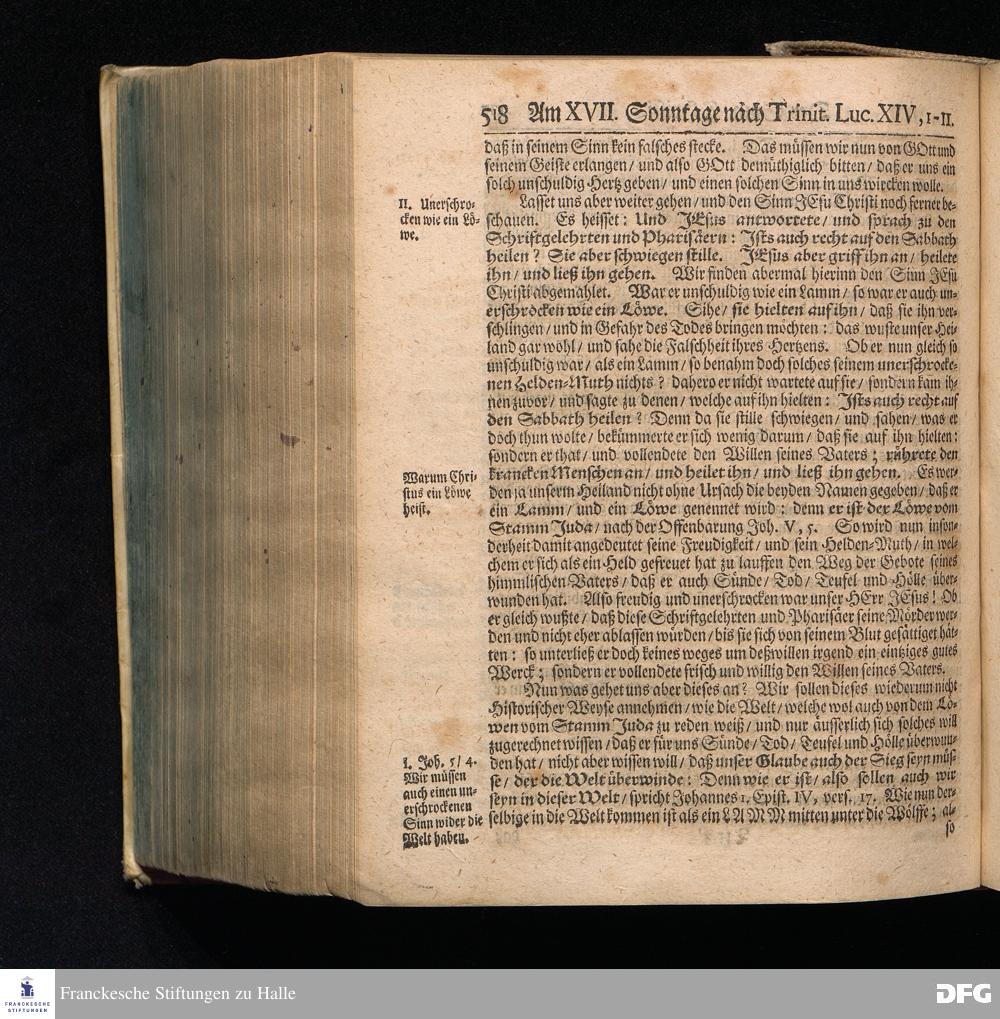 518 Am XVII. Sonntage nach Trinit. Luc. XIV, 1-11.
daß in seinem Sinn kein falsches stecke. Das müssen wir nun von GOtt und
seinem Geiste erlangen/ und also GOtt demüthiglich bitten/ daß er uns ein
solch unschuldig Hertz geben/ und einen solchen Sinn in uns wircken wolle.
II. Unerschro-
cken wie ein Lö-
we.
Lasset uns aber weiter gehen/ und den Sinn JEsu Christi noch ferner be-
schauen. Es heisset: Und JEsus antwortete/ und sprach zu den
Schriftgelehrten und Pharisäern: Ists auch recht auf den Sabbath
heilen? Sie aber schwiegen stille. JEsus aber griff ihn an/ heilete
ihn/ und ließ ihn gehen. Wir finden abermal hierinn den Sinn JEsu
Christi abgemahlet. War er unschuldig wie ein Lamm/ so war er auch un-
erschrocken wie ein Löwe. Sihe/ sie hielten auf ihn/ daß sie ihn ver-
schlingen/ und in Gefahr des Todes bringen möchten: das wuste unser Hei-
land gar wohl/ und sahe die Falschheit ihres Hertzens. Ob er nun gleich so
unschuldig war/ als ein Lamm/ so benahm doch solches seinem unerschrocke-
nen Helden-Muth nichts? dahero er nicht wartete auf sie/ sondern kam ih-
nen zuvor/ und sagte zu denen/ welche auf ihn hielten: Ists auch recht auf
den Sabbath heilen? Denn da sie stille schwiegen/ und sahen/ was er
doch thun wolte/ bekümmerte er sich wenig darum/ daß sie auf ihn hielten:
sondern er that/ und vollendete den Willen seines Vaters; rührete den
krancken Menschen an/ und heilet ihn/ und ließ ihn gehen. Es wer-
Warum Chri-
stus ein Löwe
heist.
den ja unserm Heiland nicht ohne Ursach die beyden Namen gegeben/ daß er
ein Lamm/ und ein Löwe genennet wird: denn er ist der Löwe vom
Stamm Juda/ nach der Offenbarung Joh. V, 5. So wird nun inson-
derheit damit angedeutet seine Freudigkeit/ und sein Helden-Muth/ in wel-
chem er sich als ein Held gefreuet hat zu lauffen den Weg der Gebote seines
himmlischen Vaters/ daß er auch Sünde/ Tod/ Teufel und Hölle über-
wunden hat. Also freudig und unerschrocken war unser HErr JEsus! Ob
er gleich wußte/ daß diese Schriftgelehrten und Pharisäer seine Mörder wer-
den und nicht eher ablassen würden/ bis sie sich von seinem Blut gesättiget hät-
ten: so unterließ er doch keines weges um deßwillen irgend ein eintziges gutes
Werck; sondern er vollendete frisch und willig den Willen seines Vaters.
Nun was gehet uns aber dieses an? Wir sollen dieses wiederum nicht
Historischer Weyse annehmen/ wie die Welt/ welche wol auch von dem Lö-
wen vom Stamm Juda zu reden weiß/ und nur äusserlich sich solches will
zugerechnet wissen/ daß er für uns Sünde/ Tod/ Teufel und Hölle überwun-
den hat/ nicht aber wissen will/ daß unser Glaube auch der Sieg seyn müs-
se/ der die Welt überwinde: Denn wie er ist/ also sollen auch wir
seyn in dieser Welt/ spricht Johannes 1. Epist. IV, vers. 17. Wie nun der-
selbige in die Welt kommen ist als ein LAMM mitten unter die Wölffe; al-
so
1. Joh. 5/ 4.
Wir müssen
auch einen un-
erschrockenen
Sinn wider die
Welt haben.
FRANCKESCHE
STIFTUNGEN
Franckesche Stiftungen zu Halle
DFG